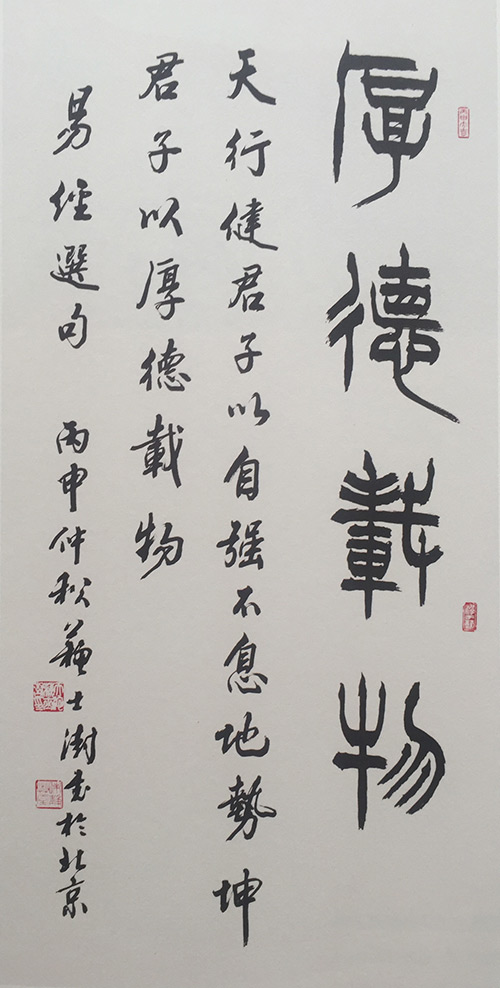 厚德載物
天行健君子以自强不息地勢坤
君子以厚德載物
易經選句 丙申仲秋蘇士澍書於北京